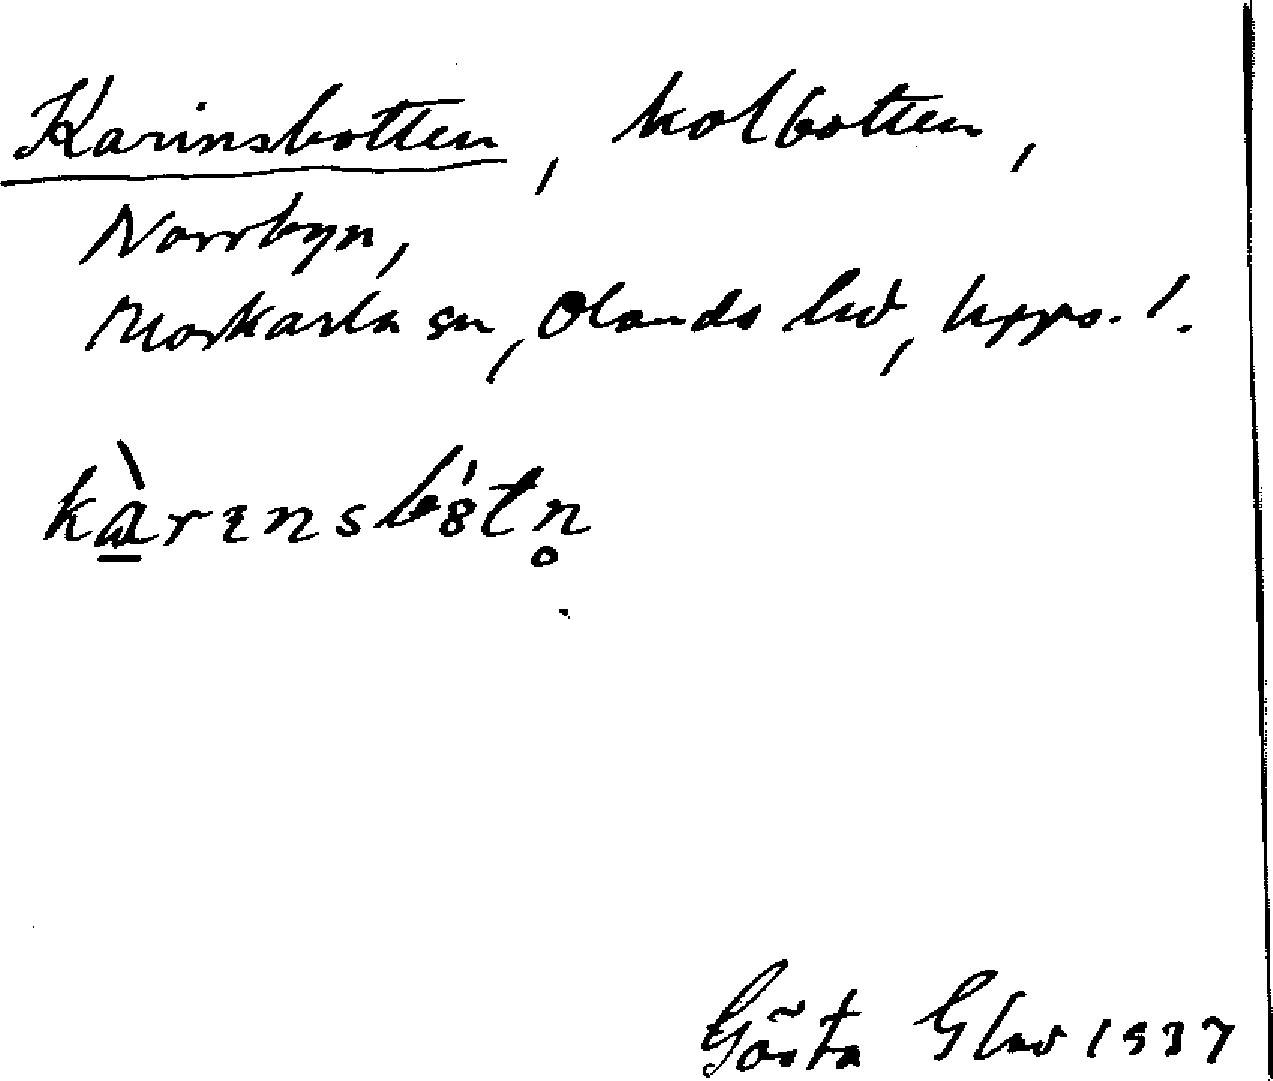 Karinsbotten, kolbotten,
Norrbyn,
Morkarla sn, Olands hd, Upps. l.
kàrɪnsbòtn̥
Gösta Glad 1937